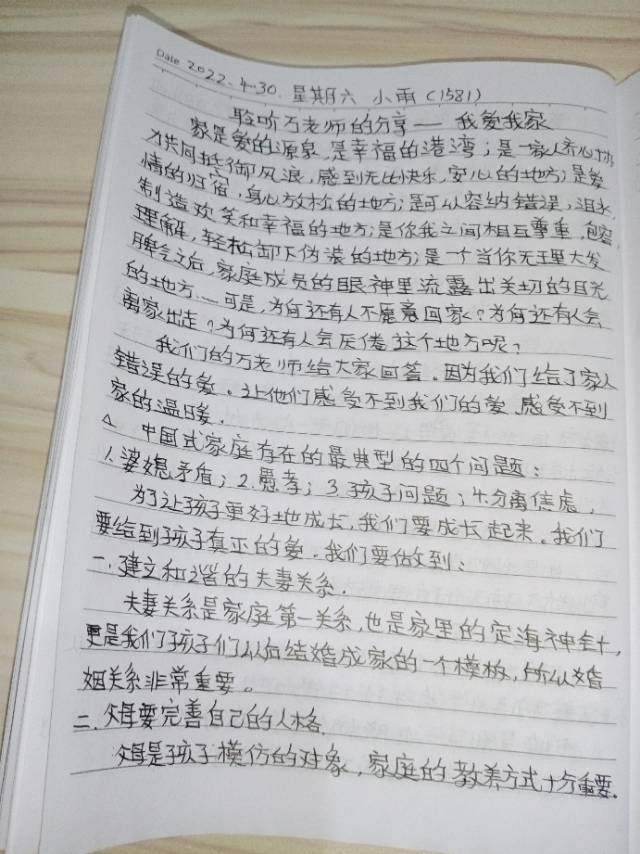 Date 2022.4.30. 星期六 小雨(1581)
聆听万老师的分享——我爱我家
家是爱的源泉,是幸福的港湾;是一家人齐心协
力共同抵御风浪,感到无比快乐,安心的地方;是爱
情的归宿,身心放松的地方;是可以容纳错误,泪水,
制造欢笑和幸福的地方;是你我之间相互尊重,包容,
理解,轻松卸下伪装的地方;是一个当你无理大发
脾气后,家庭成员的眼神里流露出关切的目光
的地方……可是,为何还有人不愿意回家?为何还有人会
离家出走?为何还有人会厌倦这个地方呢?
我们的万老师给大家回答。因为我们给了家人
错误的爱。让他们感受不到我们的爱,感受不到
家的温暖。
△ 中国式家庭存在的最典型的四个问题:
1.婆媳矛盾;2.愚孝;3.孩子问题;4.分离焦虑。
为了让孩子更好地成长,我们要成长起来。我们
要给到孩子真正的爱。我们要做到:
一.建立和谐的夫妻关系.
夫妻关系是家庭第一关系,也是家里的定海神针,
更是我们孩子们以后结婚成家的一个模板,所以婚
姻关系非常重要。
二.父母要完善自己的人格.
父母是孩子模仿的对象,家庭的教养方式十分重要.